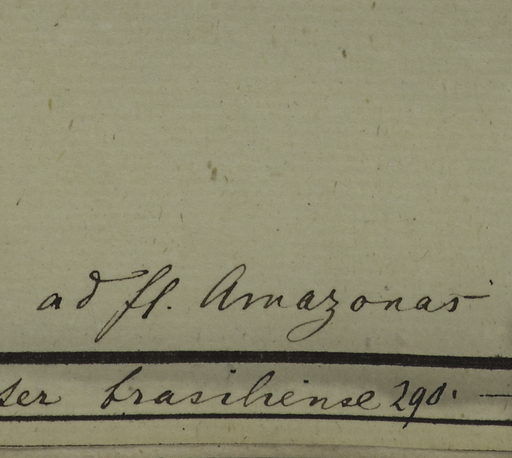 ad fl. Amazonas
ser brasiliense 290. —